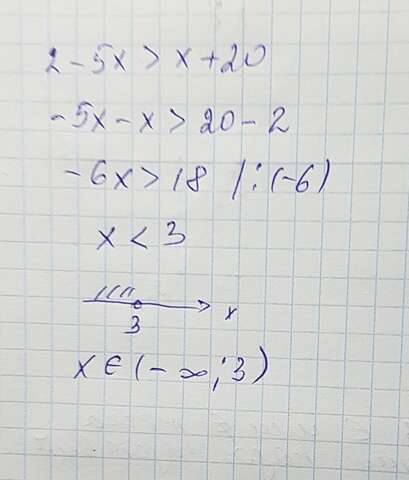 2 - 5x > x + 20
-5x - x > 20 - 2
-6x > 18 /:(-6)
x < 3
x
3
x ∈ (-∞; 3)